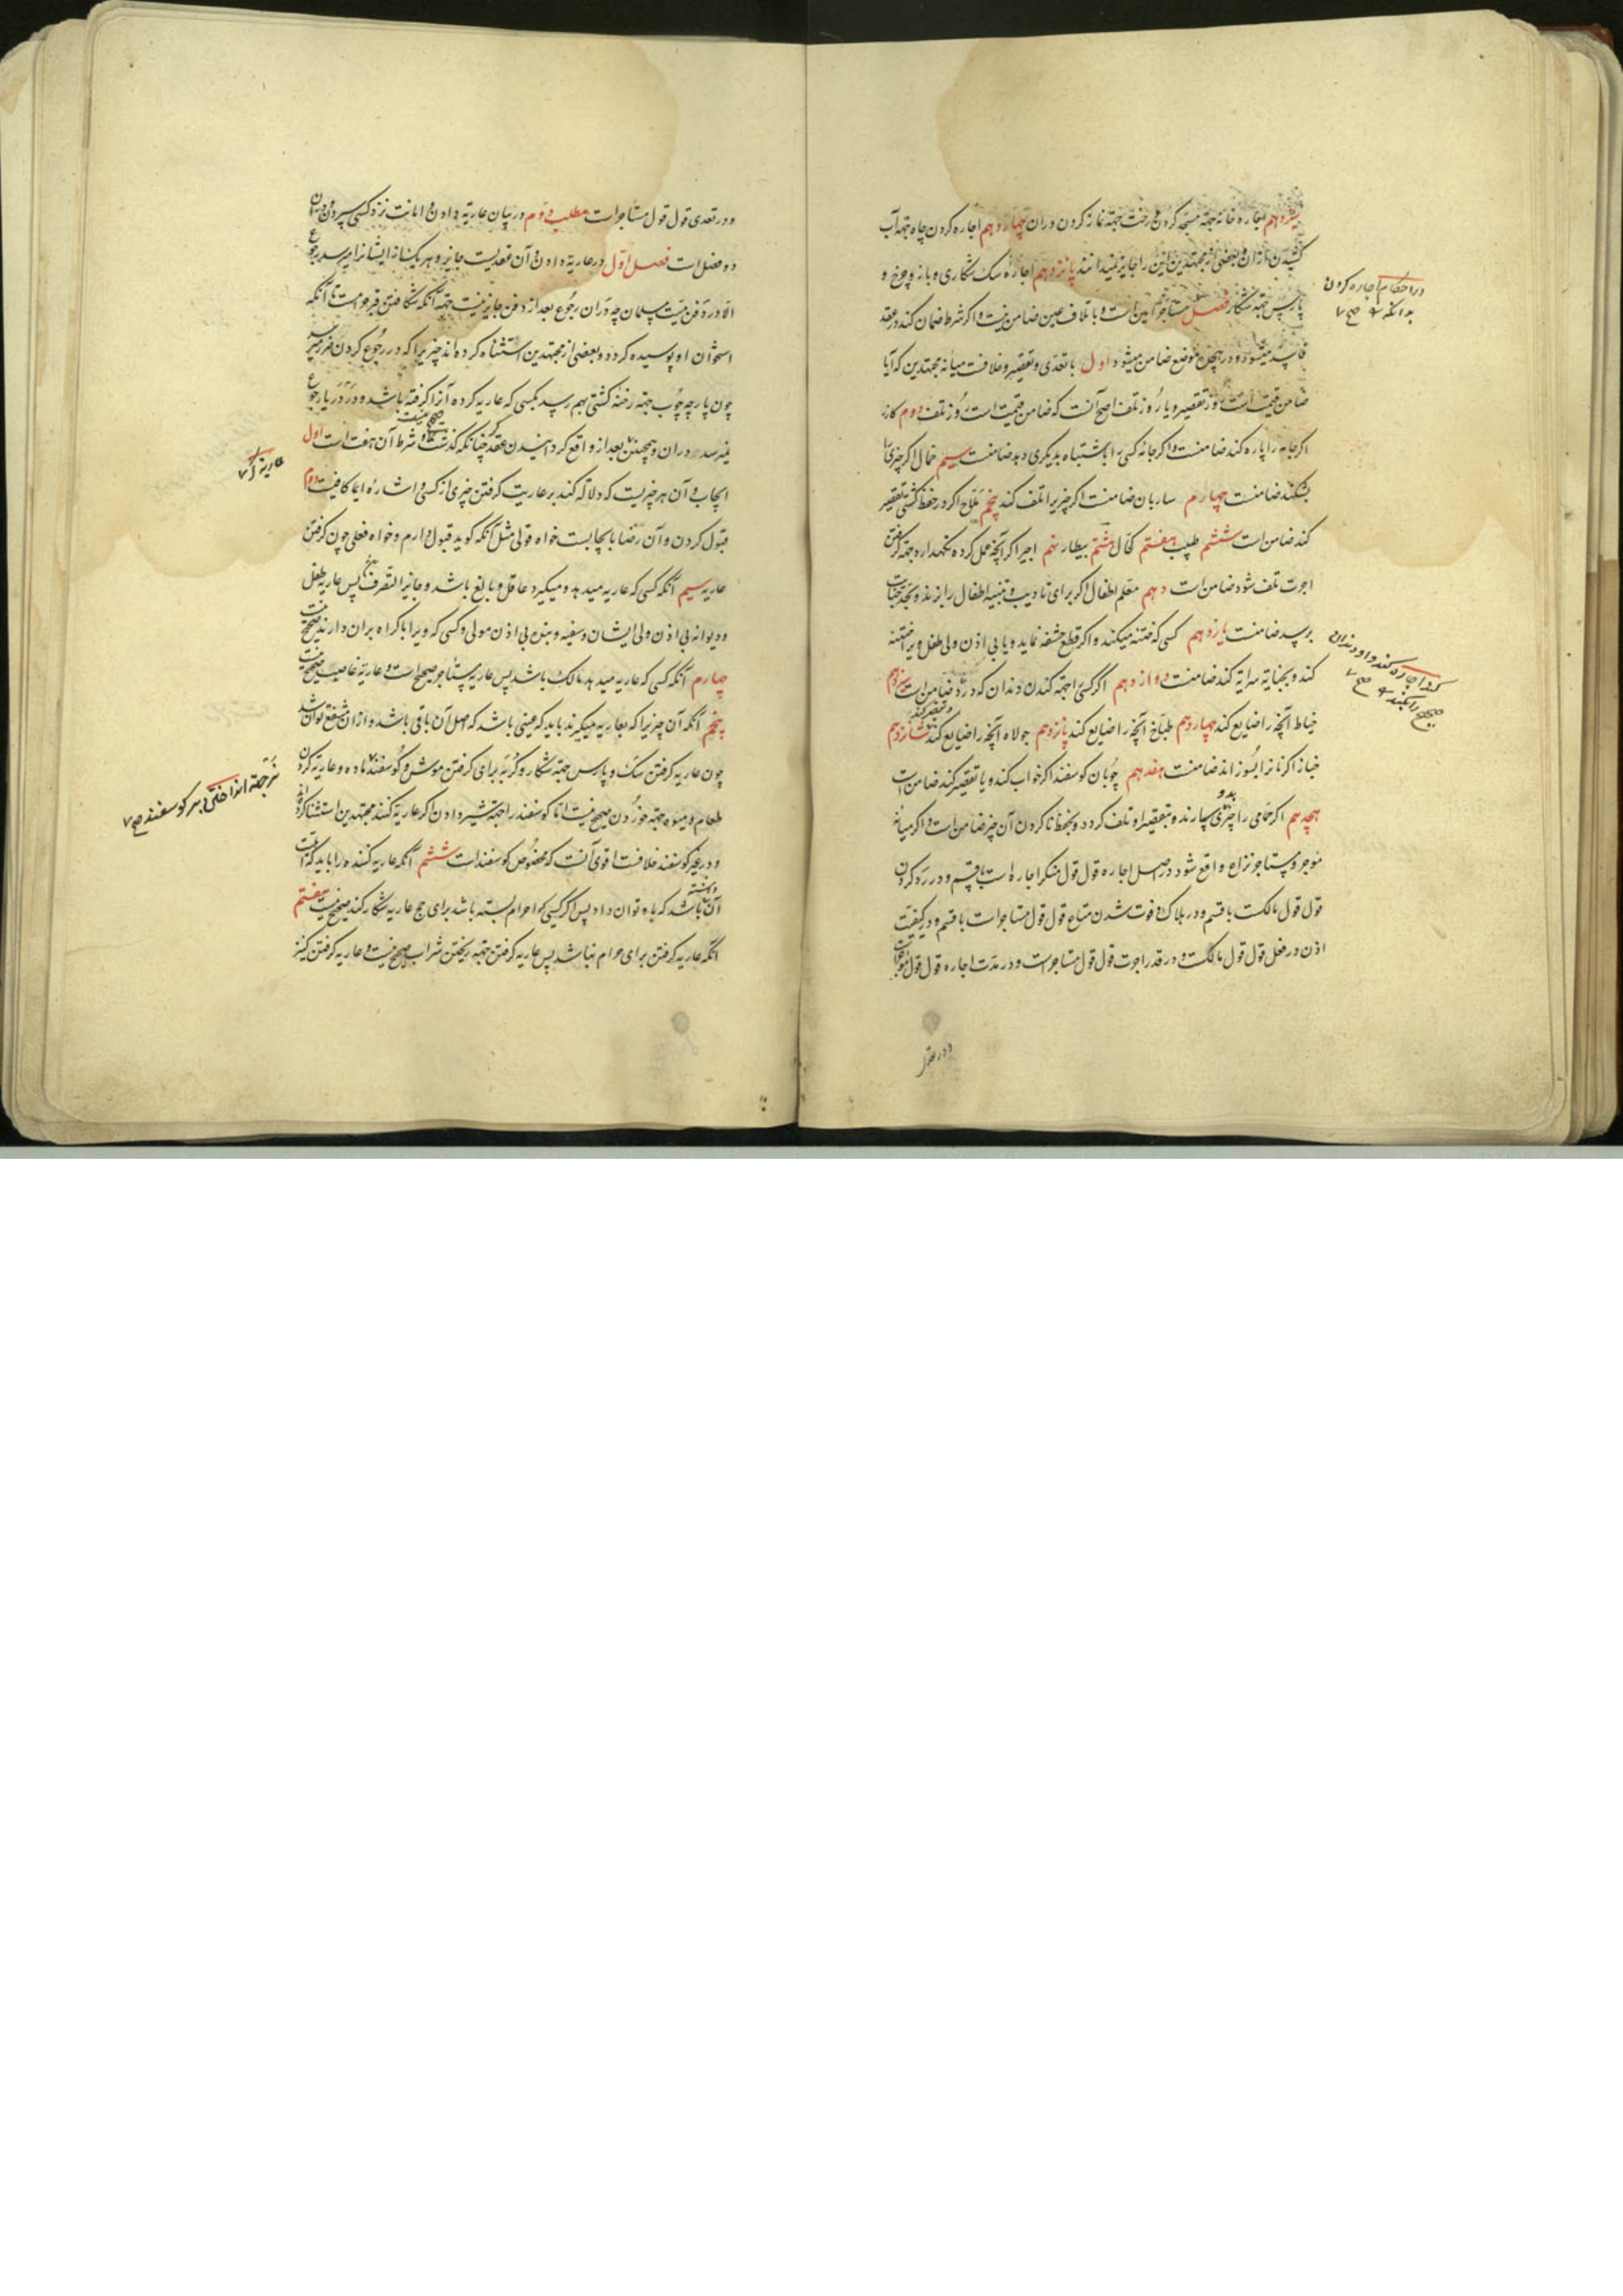 سیزدهم اجاره خانه جهة مسجد کردن و رخت جهة نماز کردن دران چهاردهم اجاره کردن چاه جهة آب
کشیدن ازان و بعضی از مجتهدین این را جایز نمیدانند پانزدهم اجارهٔ سک شکاری و باز و چرخ و
پارس جهة شکار فصل مستأجر امین است و باتلاف عین ضامن نیست و اکر شرط ضمان کند در عقد
فاسد میشود و در هجده موضع ضامن میشود اول با تعدی و تقصیر و خلافست میانه مجتهدین که آیا
ضامن قیمت است روز تقصیر و یا روز تلف اصح آنست که ضامن قیمت است روز تلف دوم کازر
اکر جامه را پاره کند ضامنست و اکر جامه کسی باشتباه بدیکری دهد ضامنست سیم حمال اکر چیزی را
بشکند ضامنست چهارم ساربان ضامنست اکر چیزیرا تلف کند پنجم ملاح اکر در حفظ کشتی تقصیر
کند ضامن است ششم طبیب هفتم کحال هشتم بیطار نهم اجیر اکر آنچه عمل کرده نکهدارد جهة کرفتن
اجرت تلف شود ضامن است دهم معلم اطفال اکر برای تادیب و تنبیه اطفال را بزند و بحد جنایت
برسد ضامنست یازدهم کسی که ختنه میکند و اکر قطع حشفه نماید و یا بی اذن ولی طفل ویرا ختنه
کند و بجنایة سرایة کند ضامنست دوازدهم اکر کسی را جهة کندن دندان که درد ضامن است سیزدهم
خیاط آنچه را ضایع کند چهاردهم طباخ آنچه را ضایع کند پانزدهم جولاه آنچه را ضایع کند شانزدهم
خباز اکر نانرا بسوزاند ضامنست هفدهم چوبان کوسفند اکر خواب کند و یا تقصیر کند ضامن است
هجدهم اکر حمامی را چیزی بدو سپارند و بتقصیر او تلف کردد و بحفظ نا کردن آن چیز ضامن است و اکر میانهٔ
موجر و مستأجر نزاع واقع شود در اصل اجاره قول قول منکر اجاره است با قسم و در رد کردن
قول قول مالکست با قسم و در هلاک و فوت شدن متاع قول قول مستاجر است با قسم و در کیفیت
اذن در فعل قول قول مالکست و در قدر اجرت قول قول مستاجرست و در مدت اجاره قول قول موجرست
در احکام اجاره کردن
بدانکه
کرد اجاره کند و او دندان
صحیح را بکند صح
و در تعدی
و در تعدی قول قول مستاجر است مطلب دوم در بیان عاریة دادن و امانت نزد کسی سپردن و دران
دو فصل است فصل اول در عاریة دادن و آن عقدیست جایز و هر یک از ایشانرا میرسد رجوع
الا در دفن میت مسلمان چه دران رجوع بعد از دفن جایز نیست جهة آنکه شکافتن قبر حرامست تا آنکه
استخوان او پوسیده کردد و بعضی از مجتهدین استثناء کرده اند چیزیرا که در رجوع کردن ضرر میرسد
چون پارچه چوب جهة رخنه کشتی بهم رسد بکسی که عاریه کرده آنرا کرفته باشد و در دریا رجوع
نمیرسد دران و همچنین بعد از واقع کردانیدن عقد چنانکه کذشت و شرط آن هفت است اول
ایجاب و آن هر چیزیست که دلالة کند بر عاریت کرفتن چیزی از کسی و اشارهٔ ایما کافیست دوم
قبول کردن و آن رضا بایجابست خواه قولی مثل آنکه کوید قبول دارم و خواه فعلی چون کرفتن
عاریه سیم آنکه کسی که عاریه میدهد و میکیرد عاقل و بالغ باشد و جایز التصرف پس عاریه طفل
و دیوانه بی اذن ولی ایشان و سفیه و بنده بی اذن مولی و کسی که ویرا باکراه بران دارند صحیح نیست
چهارم آنکه کسی که عاریه میدهد مالک باشد پس عاریه مستاجر صحیح است و عاریه غاصب صحیح نیست
پنجم آنکه آن چیزیرا که بعاریه میکیرند باید که عینی باشد که اصل آن باقی باشد و ازان منتفع توان شد
چون عاریه کرفتن سک و پارس جهة شکار و کربه برای کرفتن موش و کوسفند ماده و عاریه کردن
طعام و میوه جهة خوردن صحیح نیست اما کوسفند را جهة شیر دادن اکر عاریه کنند مجتهدین استثنا کرده اند
و در غیر کوسفند خلافست اقوی آنست که مخصوص کوسفند است ششم آنکه عاریه کننده را باید که اهلیت
آن داشته باشد که باو توان داد پس اکر کسی که احرام بسته باشد برای حج عاریه شکار کند صحیح نیست هفتم
آنکه عاریه کرفتن برای حرام نباشد پس عاریه کرفتن جهة ریختن شراب صحیح نیست و عاریه کرفتن کنیز
نر جهة انداختن بر کوسفند صح